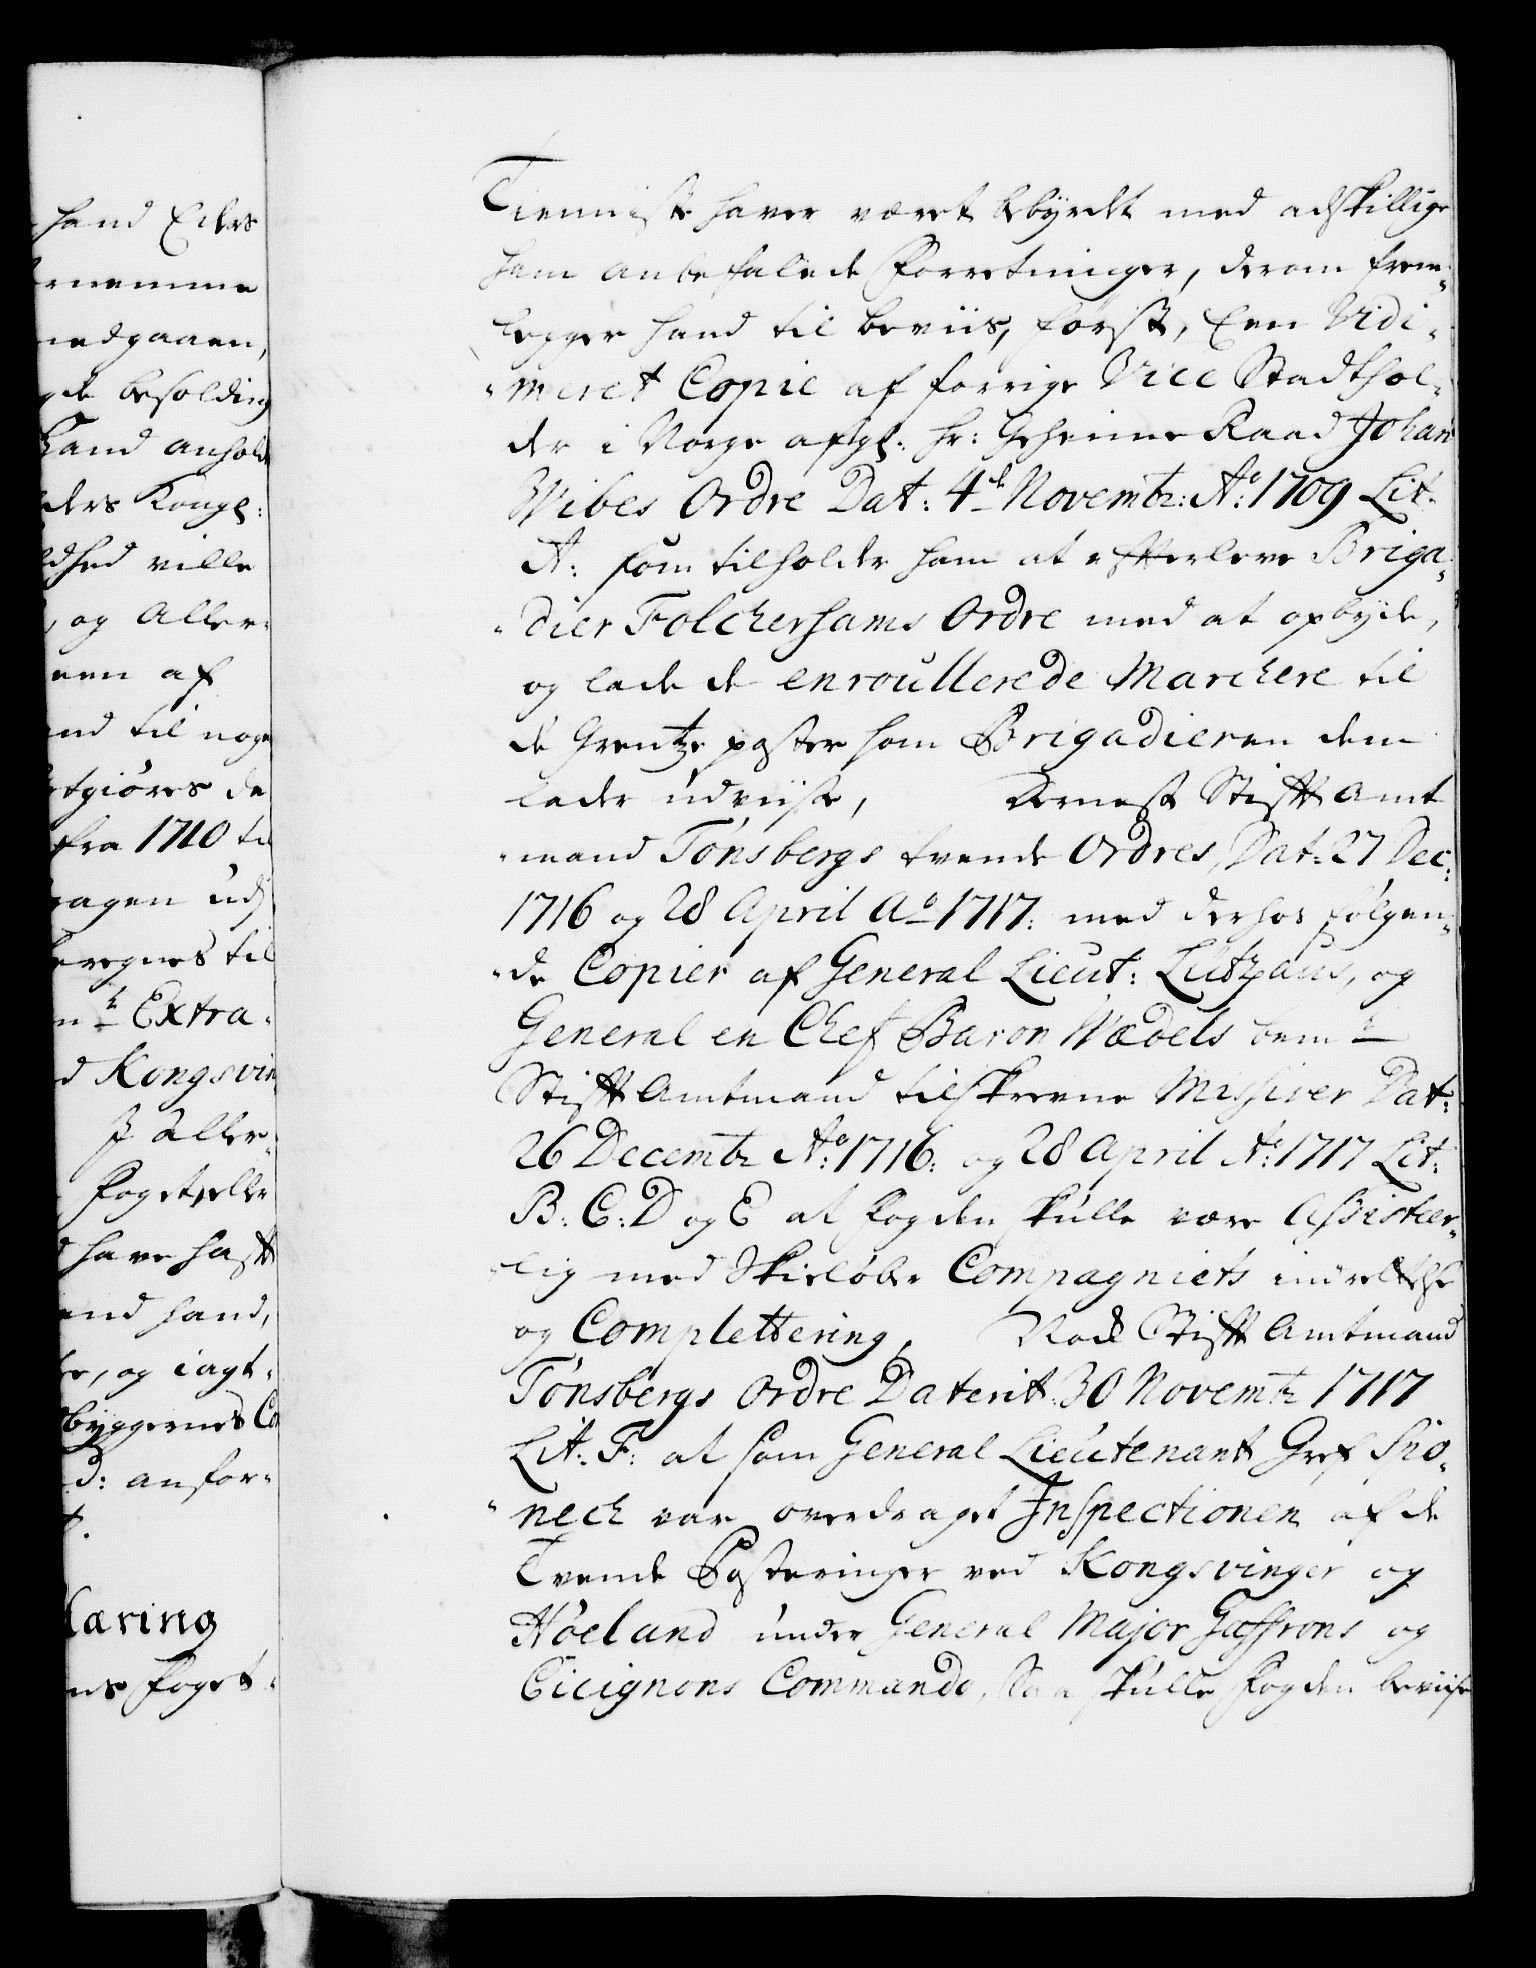 hand Eders
rnemme
nedgaaen,
gde besolding
Hand anhold
ders Kongl:
dhed ville
, og Aller-
een af
and til nogen
rtgiøres de
fra 1710 til
gagen udj
beregnes til
Extra-
d Kongsvin
J Aller-
Foget, eller
d have hafft
end hand,
te, og iagt-
byggernes Co
d: anfor-
t.
laring
ns Foget-
Tienniste haver været bebyrdet med adskillige
ham anbefalede Forretninger, derom frem-
legger hand til beviis, først, Een Vidi-
meret Copie af forrige Vice Stadthol-
der i Norge afgl: Hr: Geheime Raad Johan
Wibes Ordre Dat: 4de Novembr: Ao: 1709 Lit:
A: som tilholder ham at efterleve Briga-
dier Folchersams Ordre med at opbyde,
og lade de enroullerede Marchere til
de Grentze poster som Brigadieren dem
lader udviise, Dernest Stifft Amt
mand Tønsbergs tvende Ordres, Dat: 27 Dec:
1716 og 28 April Ao 1717: med derhos følgen-
de Copier af General Lieut: Lützaus, og
General en Chef Baron Wædels bemte
Stifft Amtmand tilskrevne Missiver Dat:
26 Decembr Ao: 1716: og 28 April Ao: 1717 Lit:
B: C: D og E at Fogden skulle være Assister-
lig med Skieløber Compagniets indrettelse
og Complettering, Nock Stifft Amtmand
Tønsbergs Ordre Daterit: 30 Novembr 1717
Lit. F: at som General Lieutenant Gref Spo-
neck var overdraget Inspectionen af de
Tvende Posteringer ved Kongsvinger og
Høeland under General Major Gaffrons og
Cicignons Commando, Saa skulle Fogden beviise